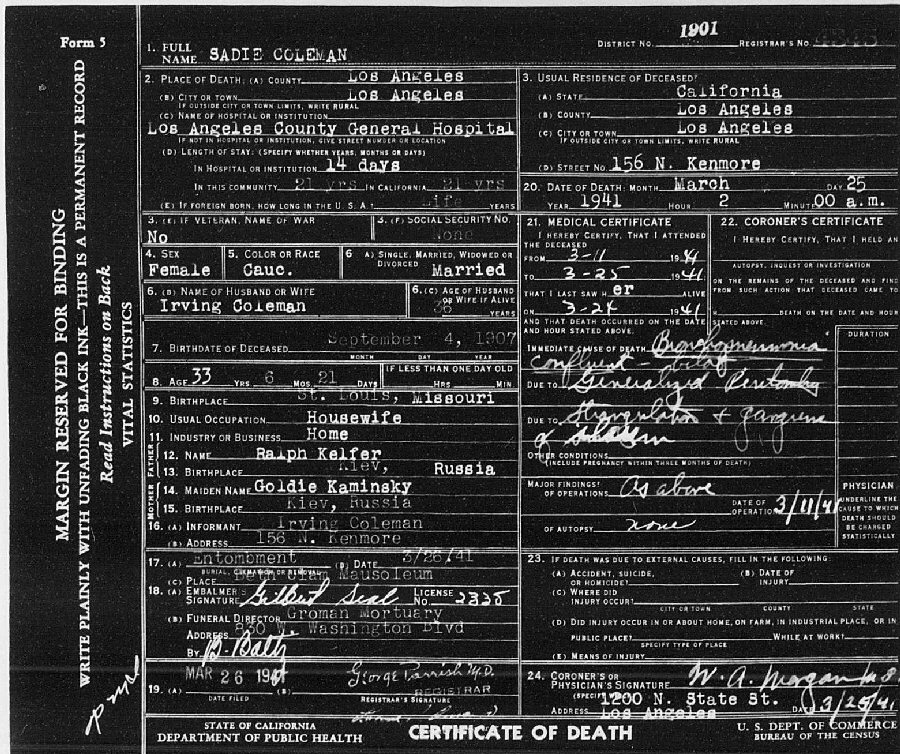 Form 5
MARGIN RESERVED FOR BINDING
WRITE PLAINLY WITH UNFADING BLACK INK—THIS IS A PERMANENT RECORD
Read Instructions on Back
VITAL STATISTICS
DISTRICT NO. 1901 REGISTRAR'S NO.
1. FULL NAME SADIE COLEMAN
2. PLACE OF DEATH: (A) COUNTY Los Angeles
(B) CITY OR TOWN Los Angeles
IF OUTSIDE CITY OR TOWN LIMITS, WRITE RURAL
(C) NAME OF HOSPITAL OR INSTITUTION
Los Angeles County General Hospital
IF NOT IN HOSPITAL OR INSTITUTION, GIVE STREET NUMBER OR LOCATION
(D) LENGTH OF STAY: (SPECIFY WHETHER YEARS, MONTHS OR DAYS)
IN HOSPITAL OR INSTITUTION 14 days
IN THIS COMMUNITY 21 yrs IN CALIFORNIA 21 yrs
(E) IF FOREIGN BORN, HOW LONG IN THE U. S. A.? Life YEARS
3. USUAL RESIDENCE OF DECEASED?
(A) STATE California
(B) COUNTY Los Angeles
(C) CITY OR TOWN Los Angeles
IF OUTSIDE CITY OR TOWN LIMITS, WRITE RURAL
(D) STREET NO. 156 N. Kenmore
3. (E) IF VETERAN, NAME OF WAR
No
3. (F) SOCIAL SECURITY NO.
None
4. SEX
Female
5. COLOR OR RACE
Cauc.
6 A) SINGLE, MARRIED, WIDOWED OR DIVORCED
Married
6. (B) NAME OF HUSBAND OR WIFE
Irving Coleman
6. (C) AGE OF HUSBAND OR WIFE IF ALIVE
36 YEARS
7. BIRTHDATE OF DECEASED September 4, 1907
MONTH DAY YEAR
8. AGE 33 YRS 6 MOS. 21 DAYS
IF LESS THAN ONE DAY OLD
HRS MIN.
9. BIRTHPLACE St. Louis, Missouri
10. USUAL OCCUPATION Housewife
11. INDUSTRY OR BUSINESS Home
FATHER
12. NAME Ralph Kelfer
13. BIRTHPLACE Kiev, Russia
MOTHER
14. MAIDEN NAME Goldie Kaminsky
15. BIRTHPLACE Kiev, Russia
16. (A) INFORMANT Irving Coleman
(B) ADDRESS 156 N. Kenmore
17. (A) Entombment (B) DATE 3/26/41
BURIAL, CREMATION OR REMOVAL
(C) PLACE Beth Olam Mausoleum
18. (A) EMBALMER'S SIGNATURE Gilbert Seal LICENSE NO. 2335
(B) FUNERAL DIRECTOR Groman Mortuary
ADDRESS 830 W. Washington Blvd
BY B. Baltz
19. (A) MAR 26 1941 (B) George Parrish M.D.
REGISTRAR
DATE FILED REGISTRAR'S SIGNATURE
20. DATE OF DEATH: MONTH March DAY 25
YEAR 1941 HOUR 2 MINUTE 00 a.m.
21. MEDICAL CERTIFICATE
I HEREBY CERTIFY, THAT I ATTENDED THE DECEASED
FROM 3-11 1941
TO 3-25 1941
THAT I LAST SAW H er ALIVE
ON 3-24 1941
AND THAT DEATH OCCURRED ON THE DATE AND HOUR STATED ABOVE.
22. CORONER'S CERTIFICATE
I HEREBY CERTIFY, THAT I HELD AN
AUTOPSY, INQUEST OR INVESTIGATION
ON THE REMAINS OF THE DECEASED AND FIND
FROM SUCH ACTION THAT DECEASED CAME TO
H DEATH ON THE DATE AND HOUR
STATED ABOVE.
DURATION
IMMEDIATE CAUSE OF DEATH Bronchopneumonia
confluent -
DUE TO Generalized Peritonitis
DUE TO Strangulation + gangrene
of
OTHER CONDITIONS
(INCLUDE PREGNANCY WITHIN THREE MONTHS OF DEATH)
MAJOR FINDINGS:
OF OPERATIONS As above
DATE OF OPERATION 3/11/41
OF AUTOPSY none
PHYSICIAN
UNDERLINE THE CAUSE TO WHICH DEATH SHOULD BE CHARGED STATISTICALLY
23. IF DEATH WAS DUE TO EXTERNAL CAUSES, FILL IN THE FOLLOWING:
(A) ACCIDENT, SUICIDE, OR HOMICIDE? (B) DATE OF INJURY
(C) WHERE DID INJURY OCCUR?
CITY OR TOWN COUNTY STATE
(D) DID INJURY OCCUR IN OR ABOUT HOME, ON FARM, IN INDUSTRIAL PLACE, OR IN
PUBLIC PLACE? WHILE AT WORK?
SPECIFY TYPE OF PLACE
(E) MEANS OF INJURY
24. CORONER'S OR PHYSICIAN'S SIGNATURE W. A. Morgan M.D.
(SPECIFY
ADDRESS 1200 N. State St. Los Angeles DATE 3/25/41
STATE OF CALIFORNIA
DEPARTMENT OF PUBLIC HEALTH
CERTIFICATE OF DEATH
U. S. DEPT. OF COMMERCE
BUREAU OF THE CENSUS